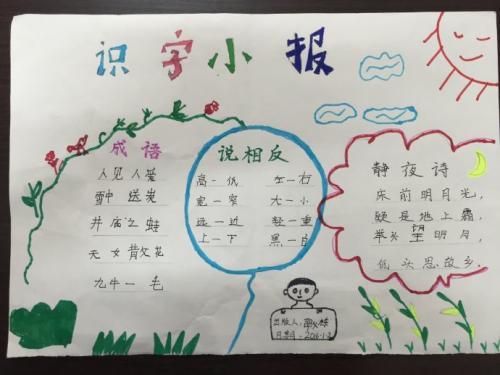 识字小报
成语
人见人爱
雪中送炭
井底之蛙
天女散花
九牛一毛
说相反
高—低 左—右
宽—窄 大—小
远—近 轻—重
上—下 黑—白
静夜诗
床前明月光,
疑是地上霜,
举头望明月,
低头思故乡。
出版人:
日期: